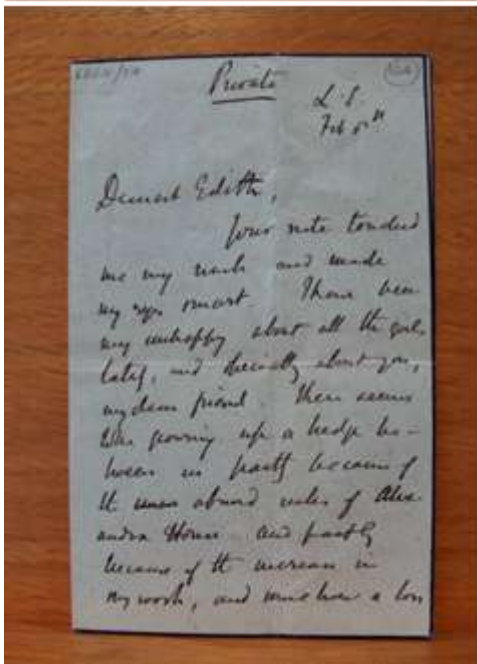 Private
L. S.
Feb 5th
Dearest Edith,
Your note touched
me very much and made
my eyes smart. I have been
very unhappy about all the girls
lately, and specially about you,
my dear friend. There seems
to be growing up a hedge be-
tween us partly because of
the absurd rules of Alex-
andra House and partly
because of the increase in
my work, and somehow a loss